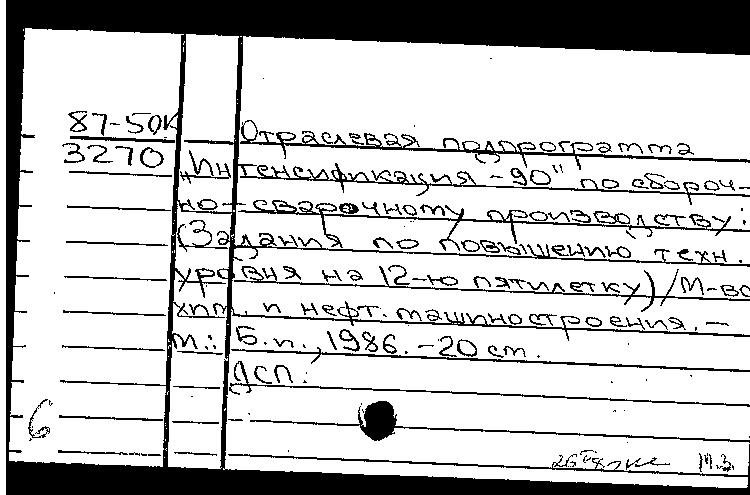 87-50К
3270
Отраслевая подпрограмма
„Интенсификация -90" по сбороч-
но-сварочному производству:
(Задания по повышению техн.
уровня на 12-ю пятилетку)/М-во
хим. и нефт. машиностроения. —
М.: Б.и., 1986. -20 см.
ДСП.
6
М.З.